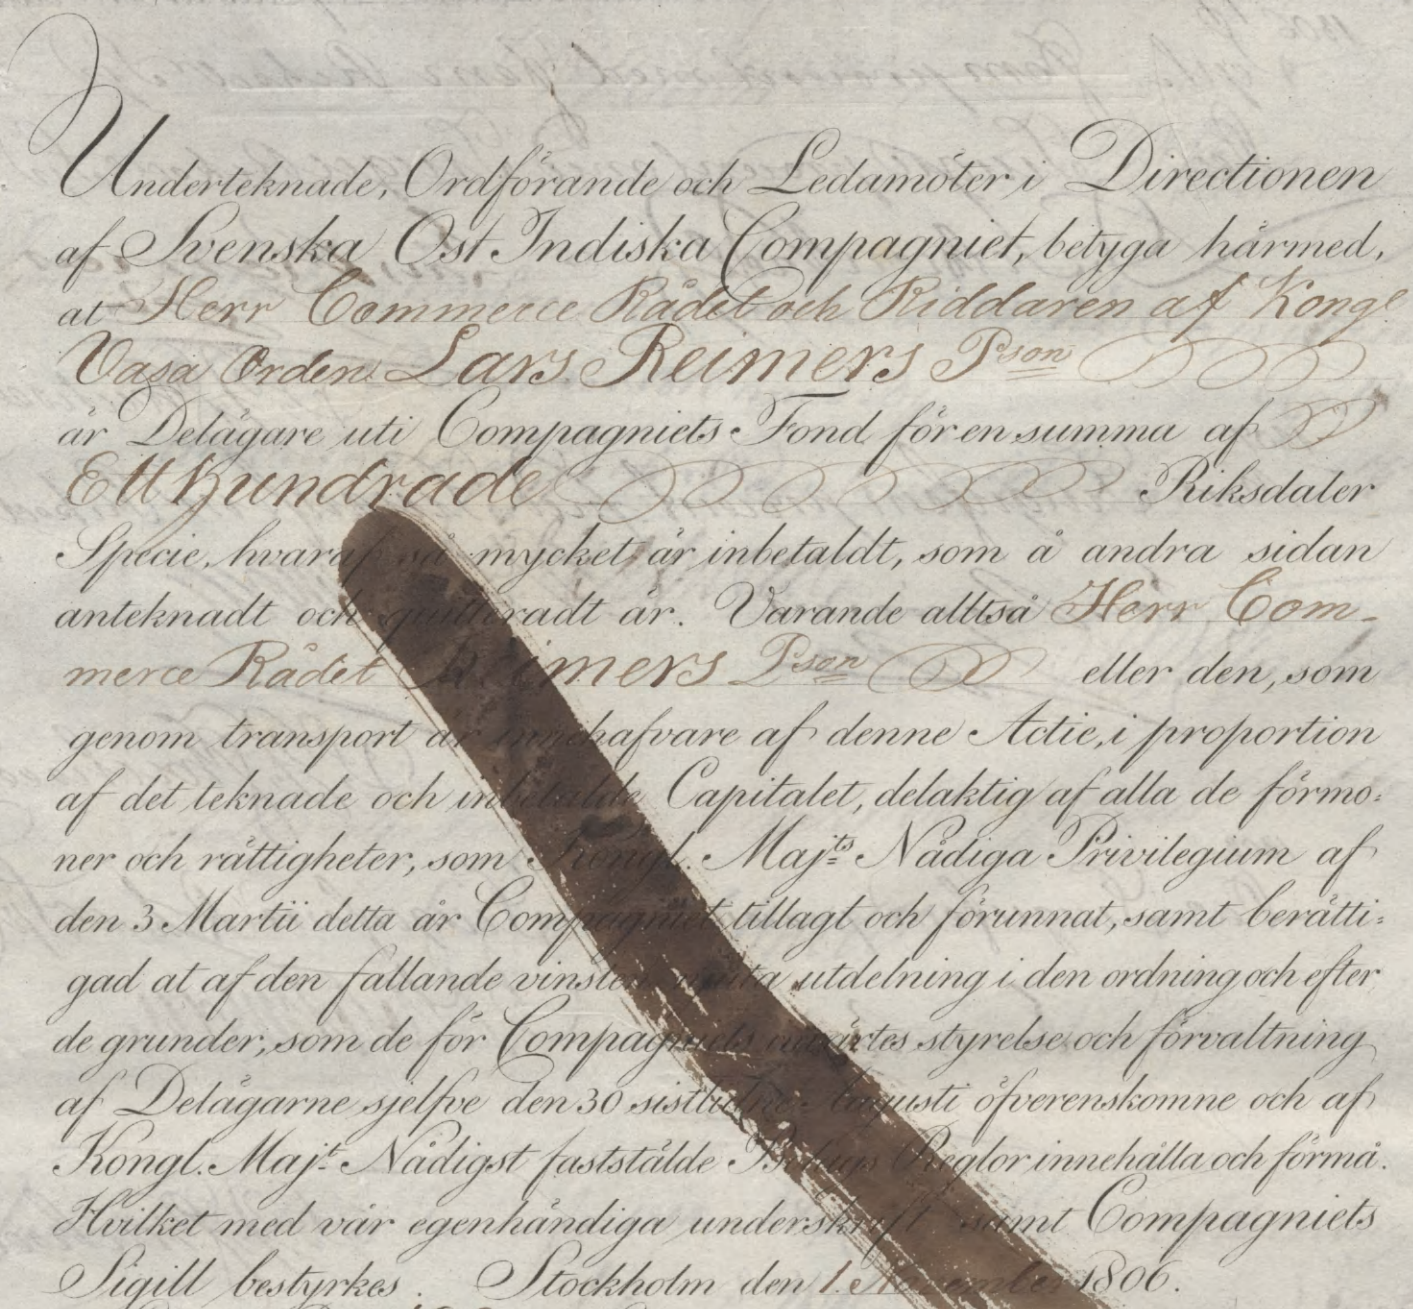 Underteknade, Ordförande och Ledamöter i Directionen
af Svenska Ost Indiska Compagniet, betyga härmed,
at Herr Commerce Rådet och Riddaren af Kongl
Vasa Orden Lars Reimers Pson
är Delägare uti Compagniets Fond för en summa af
Ett hundrade Riksdaler
Specie, hvaraf så mycket är inbetaldt, som å andra sidan
anteknadt och quitteradt är. Varande alltså Herr Com-
merce Rådet Reimers Pson eller den, som
genom transport är innehafvare af denne Actie, i proportion
af det teknade och inbetalde Capitalet, delaktig af alla de förmo:
ner och rättigheter, som Kongl. Maj:ts Nådiga Privilegium af
den 3 Martii detta år Compagniet tillagt och förunnat, samt berätti:
gad at af den fallande vinsten niuta utdelning i den ordning och efter
de grunder, som de för Compagniets invärtes styrelse och förvaltning
af Delägarne sjelfve den 30 sistledne Augusti öfverenskomne och af
Kongl. Maj:t Nådigst faststälde Bolags Reglor innehålla och förmå.
Hvilket med vår egenhändiga underskrift samt Compagniets
Sigill bestyrkes. Stockholm den 1. November 1806.